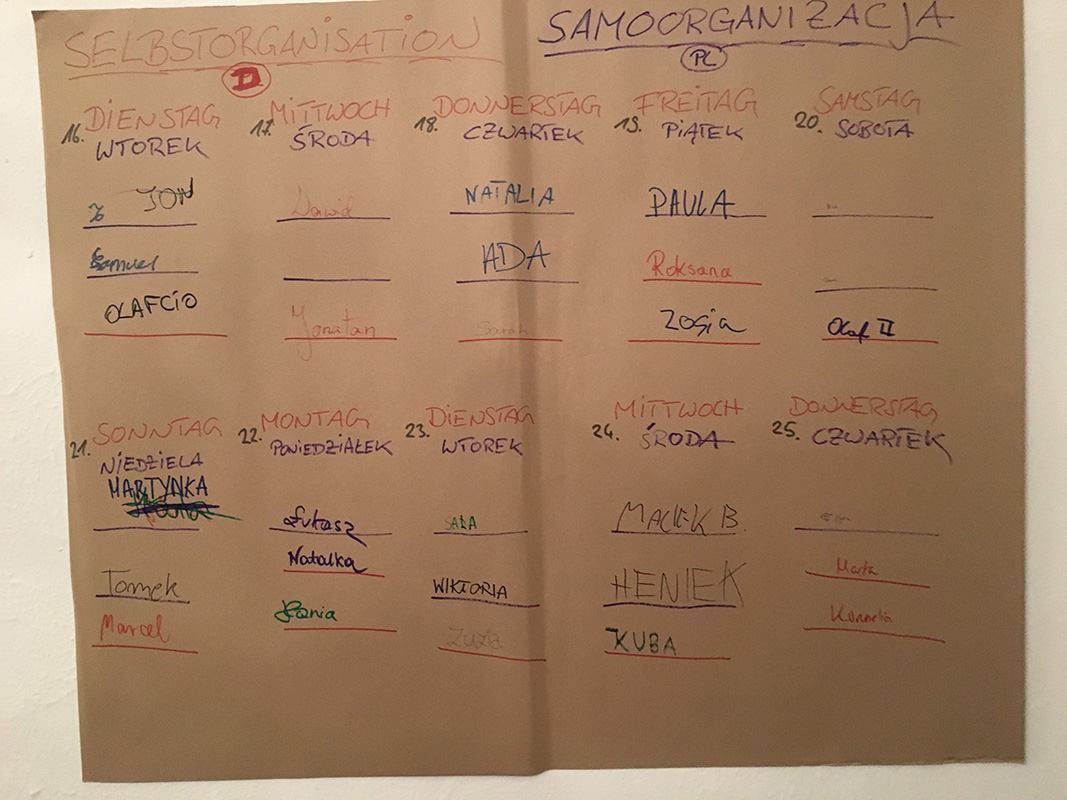 SELBSTORGANISATION
D
SAMOORGANIZACJA
PL
16. DIENSTAG
WTOREK
JON
Samuel
OLAFCIO
17. MITTWOCH
ŚRODA
Dawid
Jonatan
18. DONNERSTAG
CZWARTEK
NATALIA
ADA
Sarah
19. FREITAG
PIĄTEK
PAULA
Roksana
Zosia
20. SAMSTAG
SOBOTA
Olaf II
21. SONNTAG
NIEDZIELA
MARTYNKA
Tomek
Marcel
22. MONTAG
PONIEDZIAŁEK
Łukasz
Natalka
Hania
23. DIENSTAG
WTOREK
WIKTORIA
Zuzia
24. MITTWOCH
ŚRODA
MACIEK B.
HENIEK
KUBA
25. DONNERSTAG
CZWARTEK
Marta
Kornelia